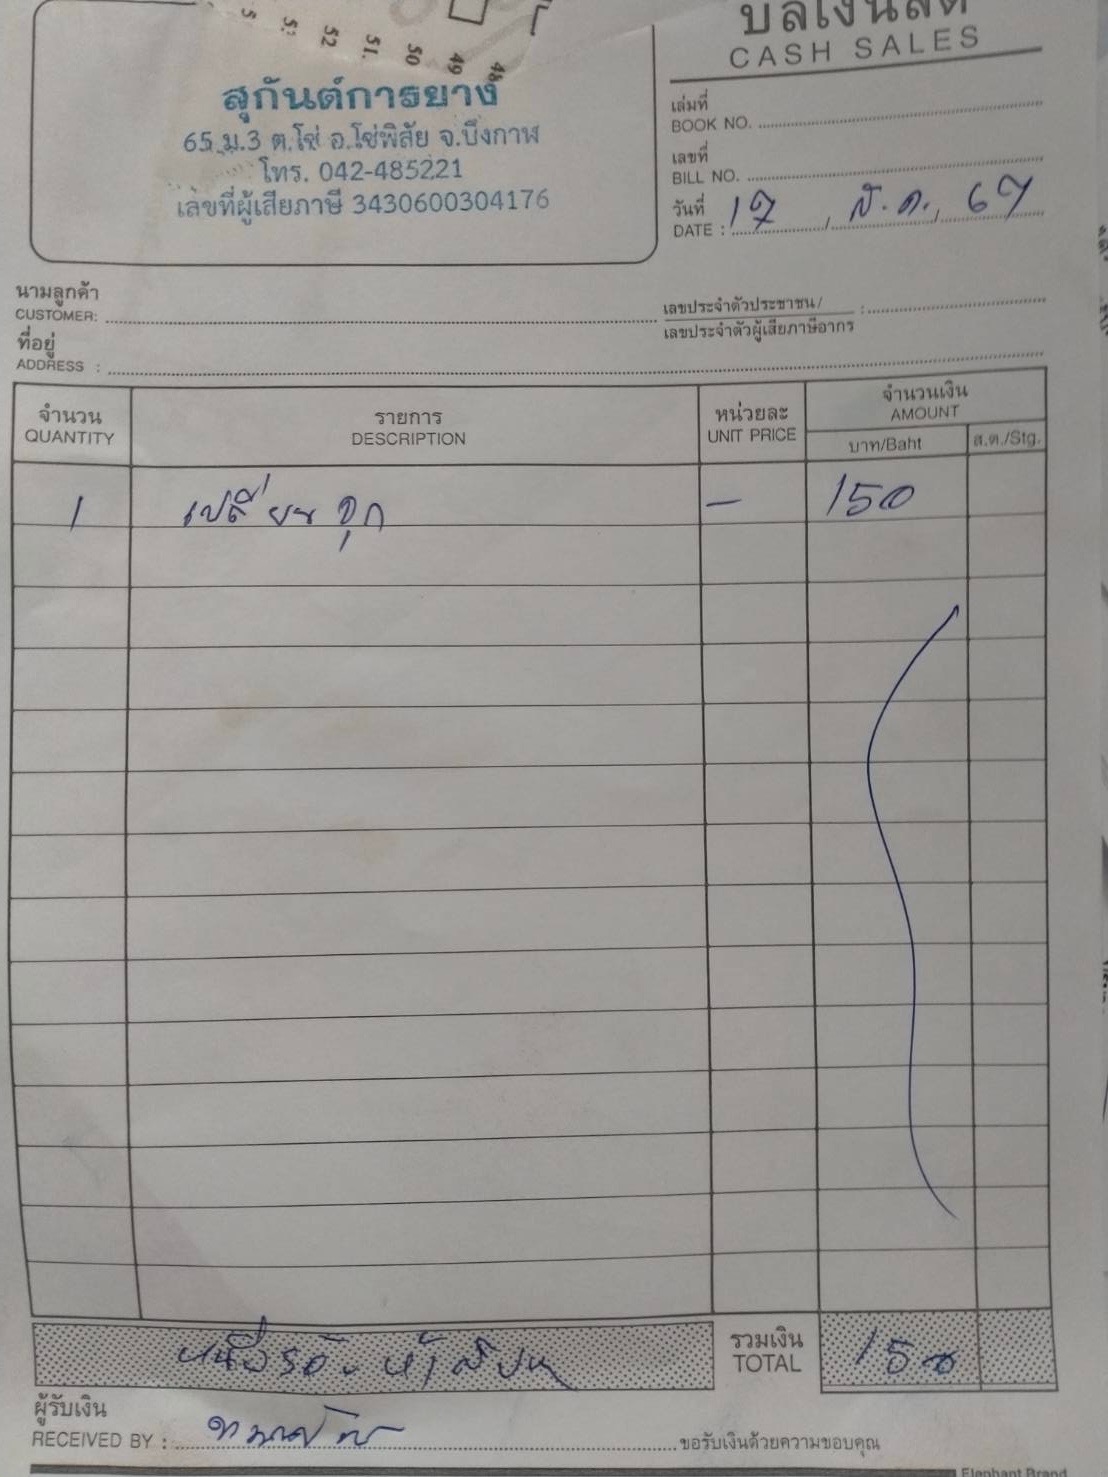 48 49 50 51. 52 5
บิลเงินสด
CASH SALES
สุกันต์การยาง
65 ม.3 ต.โซ่ อ.โซ่พิสัย จ.บึงกาฬ
โทร. 042-485221
เลขที่ผู้เสียภาษี 3430600304176
เล่มที่
BOOK NO.
เลขที่
BILL NO.
วันที่
DATE : 17 / ส.ค. / 67
นามลูกค้า
CUSTOMER:
เลขประจำตัวประชาชน/ :
เลขประจำตัวผู้เสียภาษีอากร
ที่อยู่
ADDRESS :
จำนวน รายการ หน่วยละ จำนวนเงิน
QUANTITY DESCRIPTION UNIT PRICE AMOUNT
บาท/Baht ส.ต./Stg.
1 เปลี่ยนจุก - 150
หนึ่งร้อยห้าสิบบาท รวมเงิน 150
TOTAL
ผู้รับเงิน
RECEIVED BY : ขอรับเงินด้วยความขอบคุณ
Elephant Brand